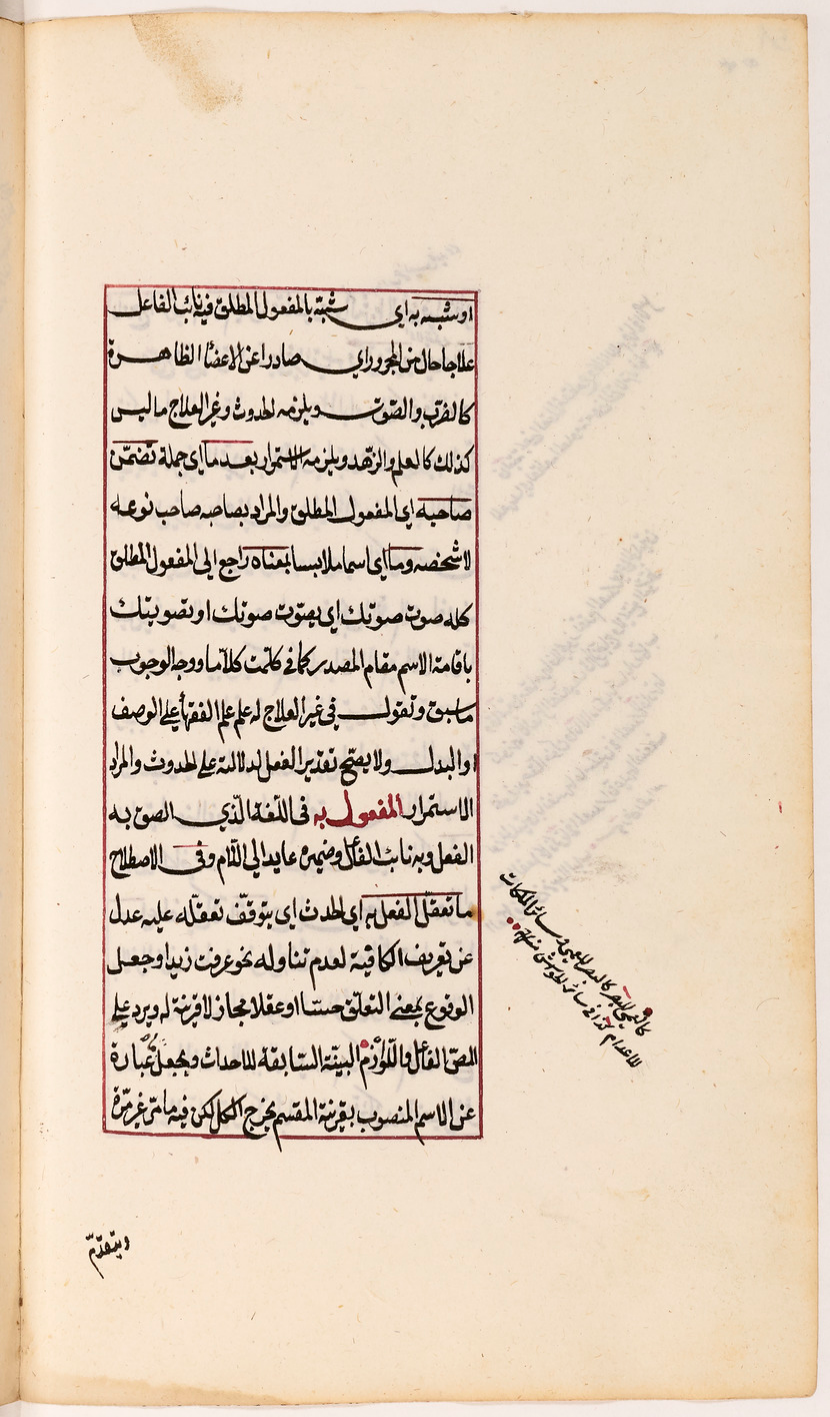 او شبه به اى شبّه بالمفعول المطلق فيه نائب الفاعل
علاجا حال من المجرور اى صادرا عن الاعضاء الظاهرة
كالضرب والصّوت ويلزمه الحدوث وغير العلاج ما ليس
كذلك كالعلم والزّهد ويلزمه الاستمرار بعد ما اى جملة تضمّن
صاحبه اى المفعول المطلق والمراد بصاحبه صاحب نوعه
لا شخصه وما اى اسما ملابسا بمعناه راجع الى المفعول المطلق
كله صوت صوتك اى يصوّت صوتك او تصويتك
باقامة الاسم مقام المصدر كما فى كلّمت كلاما ووجه الوجوب
ما سبق وتقول فى غير العلاج له علم علم الفقهاء على الوصف
او البدل ولا يصحّ تقدير الفعل لدلالته على الحدوث والمراد
الاستمرار المفعول به فى اللّغة الّذى الصق به
الفعل وبه نائب الفاعل وضميره عايد الى اللّام وفى الاصطلاح
ما تعقّل الفعل به اى الحدث اى يتوقّف تعقّله عليه عدل
عن تعريف الكافية لعدم تناوله نحو عرفت زيدا وجعل
الوقوع بمعنى التعلّق حسّا او عقلا مجاز لا قرينة له ويرد على
المص الفاعل واللّوازم البيّنة السّابقة للاحداث ويجعل ما عبارة
عن الاسم المنصوب بقرينة المقسم يخرج الكل لكن فيه ما مرّ غير مرّة
كالعمى للبصر كالبصر للعمى وسائر الملكات
للاعدام كذا فى سائر
ويتقدّم